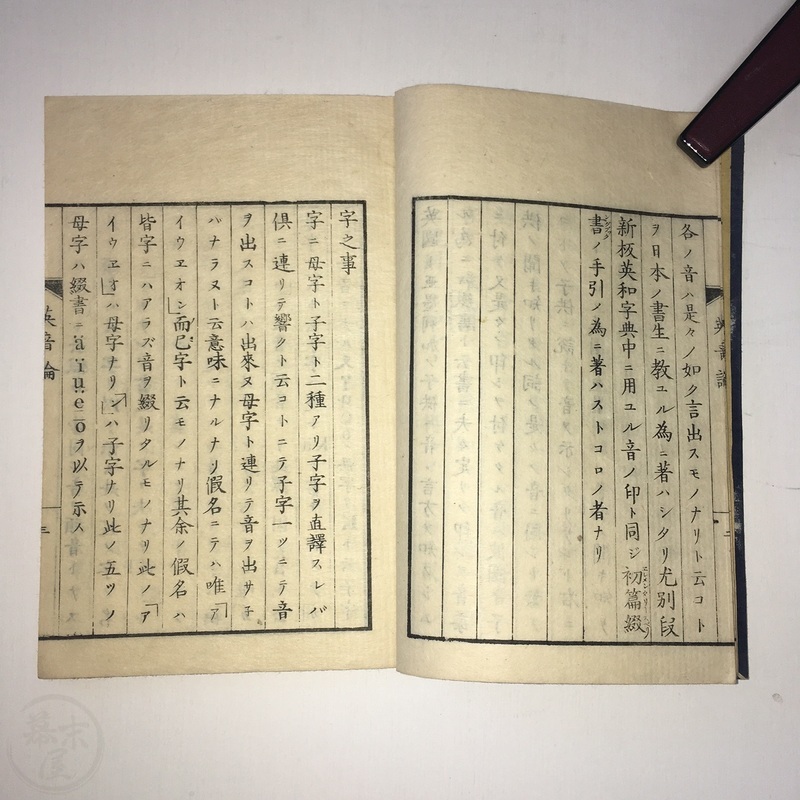 各ノ音ハ是々ノ如ク言出スモノナリト云コト
ヲ日本ノ書生ニ教ユル為ニ著ハシタリ尤別段
新板英和字典中ニ用ユル音ノ印ト同ジ初篇綴
書ノ手引ノ為ニ著ハストコロノ者ナリ
英音論
二
字之事
字ニ母字ト子字ト二種アリ子字ヲ直譯スレバ
倶ニ連リテ響クト云コトニテ子字一ツニテ音
ヲ出スコトハ出來ヌ母字ト連リテ音ヲ出サ子
バナラヌト云意味ニナルナリ假名ニテハ唯「ア
イウヱオン」而已字ト云モノナリ其余ノ假名ハ
皆字ニハアラズ音ヲ綴リタルモノナリ此ノ「ア
イウヱオ」ハ母字ナリ「ン」ハ子字ナリ此ノ五ツノ
母字ハ綴書ニäïüeoヲ以テ示ス
英音論
三
幕末屋